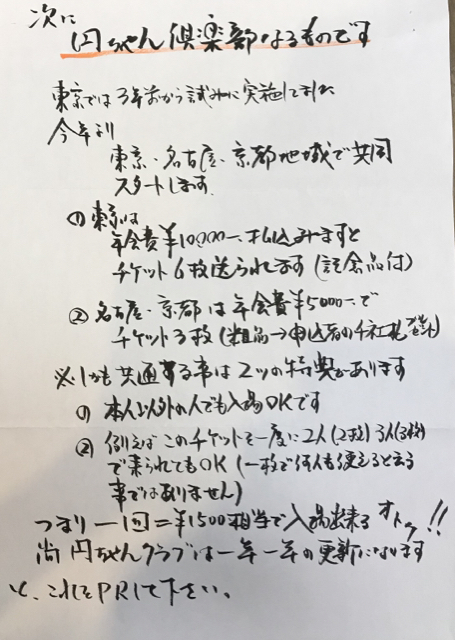 次に
円ちゃん倶楽部なるものです
東京では3年前から試みに実施してました
今年より
東京・名古屋・京都地域で共同
スタートします
① 東京は
年会費¥10000-、払込みますと
チケット6枚送られます(記念品付)
② 名古屋・京都は年会費¥5000-で
チケット3枚(粗品→申込者の千社札プレゼント)
※しかも共通する事は2ツの特典があります
① 本人以外の人でも入場OKです
② 例えばこのチケットを一度に2人(2枚)3人(3枚)
で来られてもOK(一枚で何人も使えると云う
事ではありません)
つまり一回=¥1500相当で入場出来るオトク!!
尚円ちゃんクラブは一年一年の更新になります
と、これをPRして下さい。